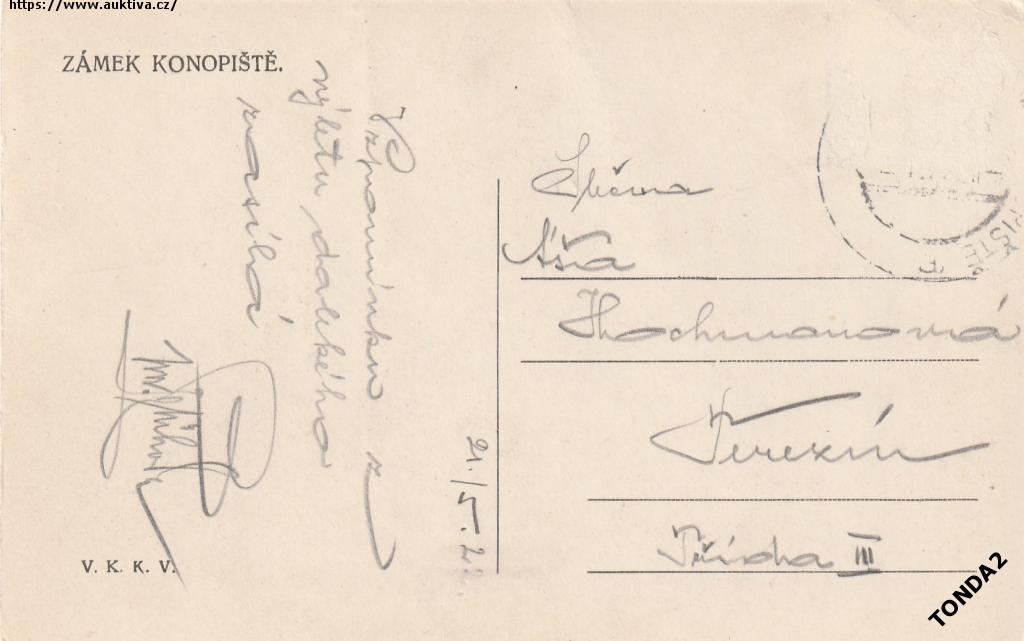 https://www.auktiva.cz/
ZÁMEK KONOPIŠTĚ.
Vzpomínku z
výletu dalekého
zasílá
21./5. 22.
V. K. K. V.
Slečna
Áša
Hochmanová
Terezín
Třída III
PIŠTĚ
TONDA2